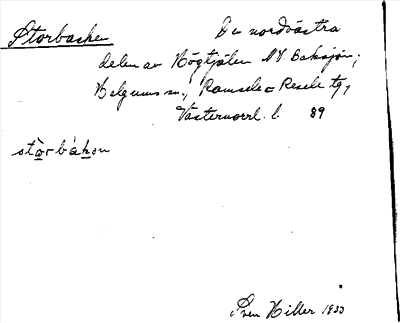 Storbacken De nordvästra
delen av Högtjälen NV Baksjön;
Helgums sn, Ramsele o Resele tg,
Västernorrl. l. 89
stòrbákən
Sven Hiller 1933